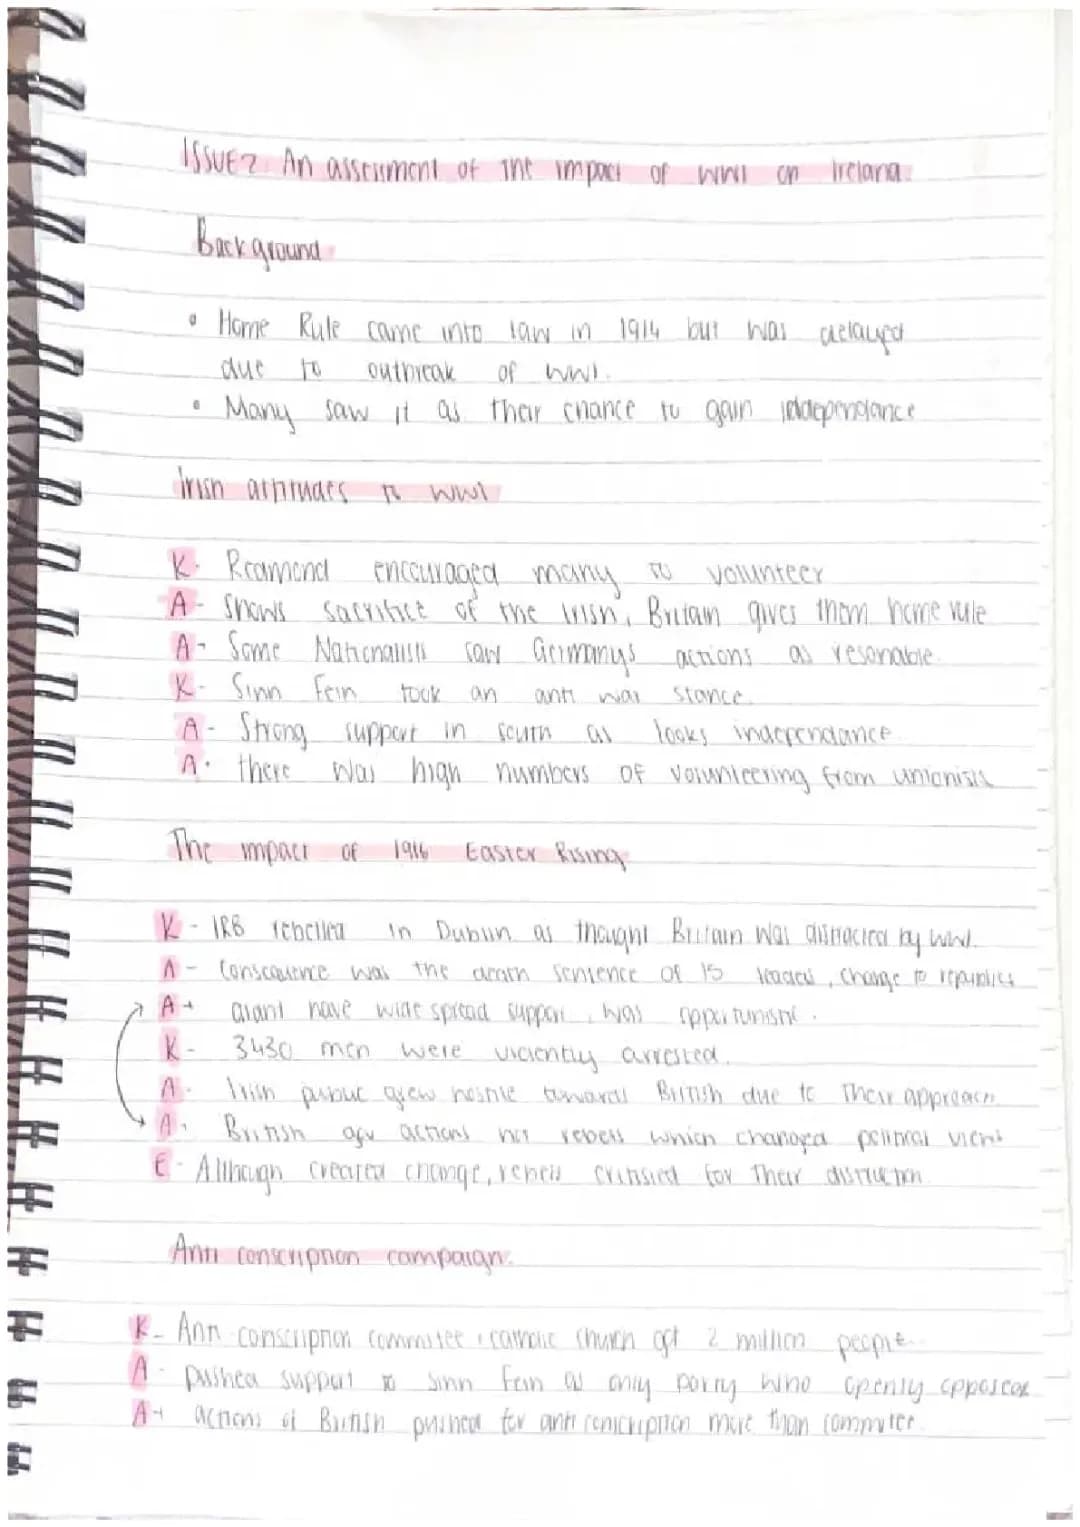 ISSUE 2: An assessment of the impact of WW1 on Ireland.
Background
• Home Rule came into law in 1914 but was delayed
due to outbreak of WW1.
• Many saw it as their chance to gain independance
Irish attitudes to WW1
K- Redmond encouraged many to volunteer
A- Shows sacrifice of the Irish, Britain gives them home rule
A- Some Nationalists saw Germanys actions as resonable.
K- Sinn Fein took an anti war stance.
A- Strong support in south as looks independance.
A- there was high numbers of volunteering from unionists
The impact of 1916 Easter Rising
K- IRB rebelled in Dublin as thought Britain was distracted by WW1.
A- Consequence was the death sentence of 15 leaders, change to republics
A+ didnt have wide spread support, was oppurtunistic.
K- 3430 men were violently arrested.
A- Irish public grew hostile towards British due to their approach.
A- British gov actions not rebels which changed political views
E- Although created change, rebels critisied for their distruction.
Anti conscription campaign.
K- Anti conscription commitee + catholic church got 2 million people.
A- pushed support to Sinn Fein as only party who openly opposed
A+ actions of British pushed for anti conscription more than commitee.